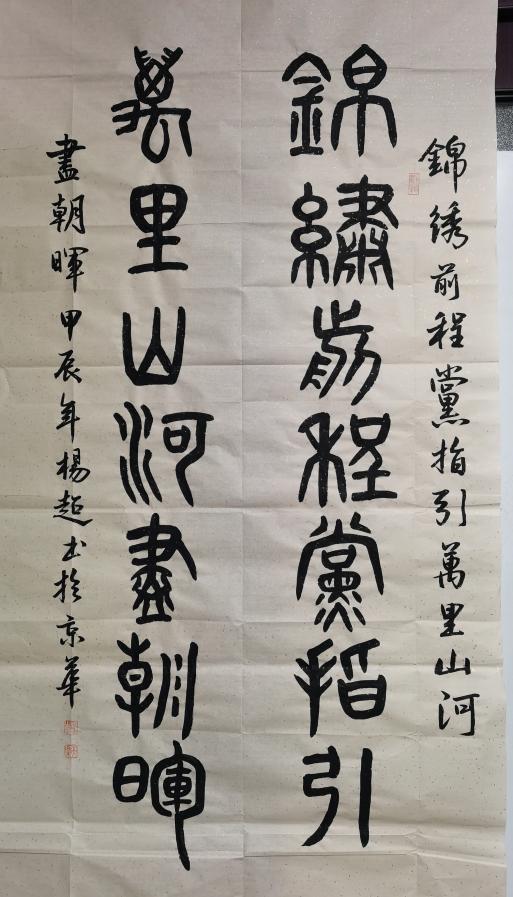 錦綉前程黨指引萬里山河
錦繡前程黨指引
萬里山河盡朝暉
盡朝暉甲辰年楊超書於京華